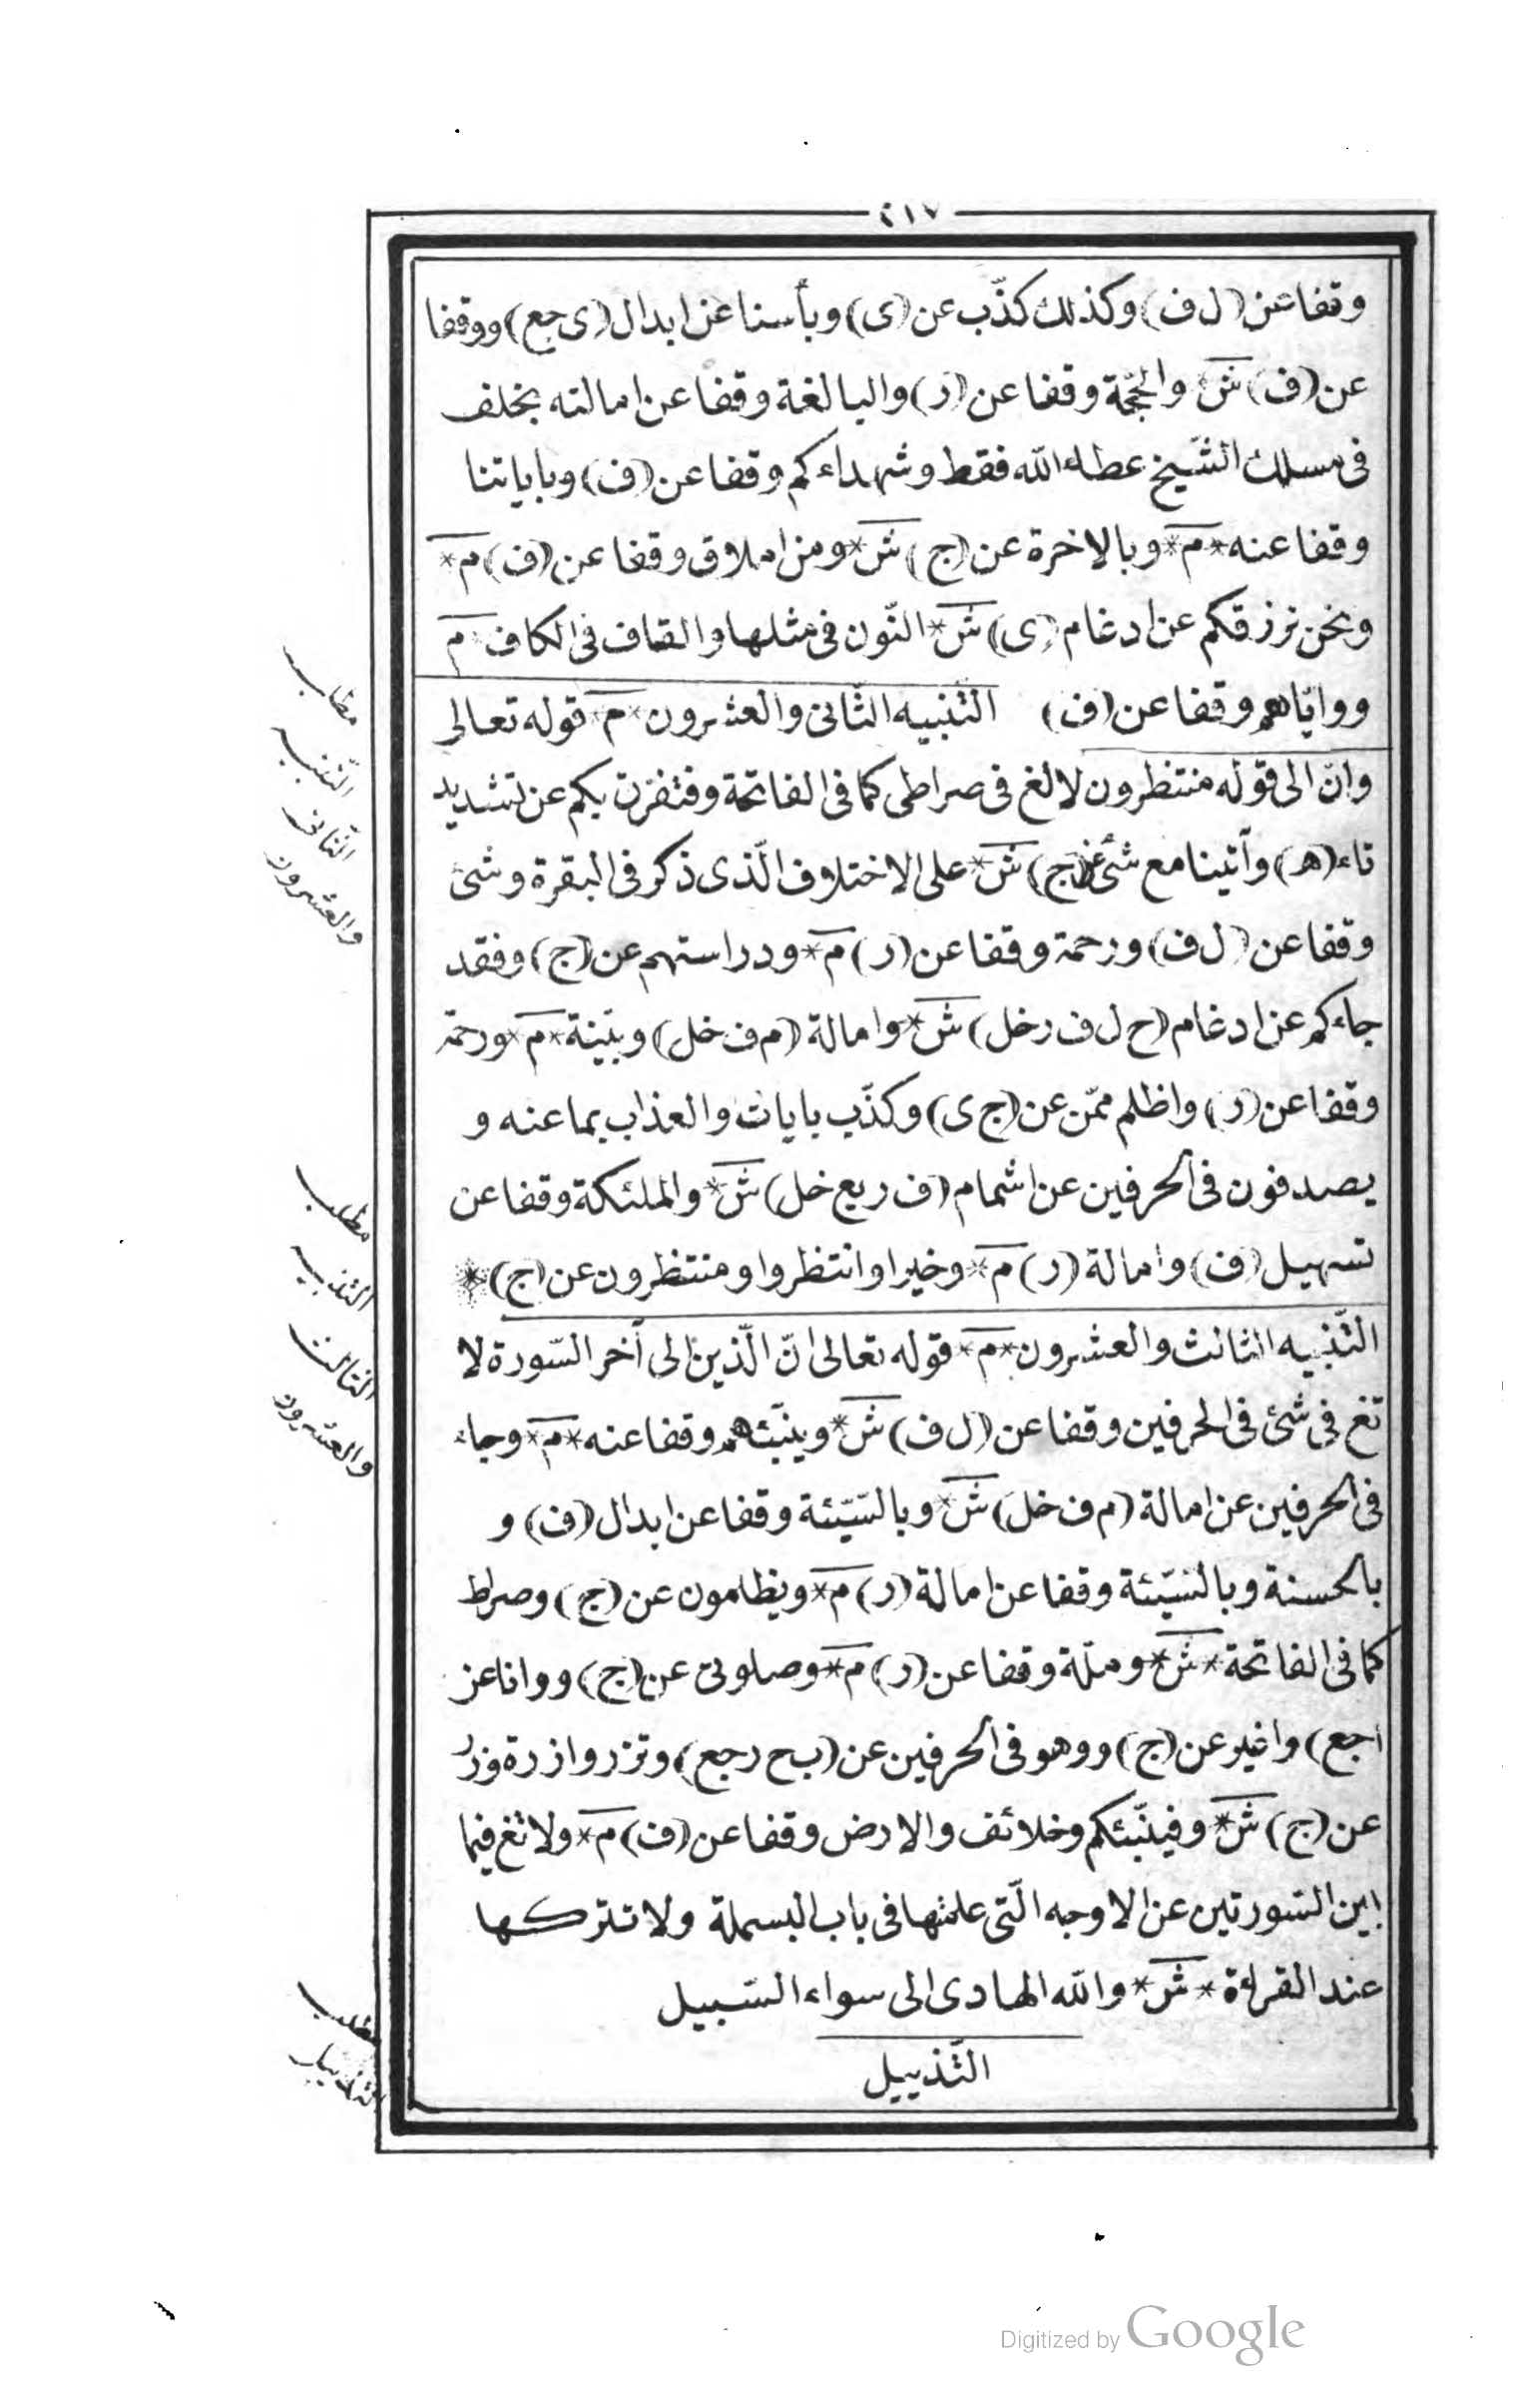 ٢١٧
وقفا عن (ل ف) وكذلك كذّب عن (ى) وبأسنا عن ابدال (ى جع) ووقفا
عن (ف) ش* والحجّة وقفا عن (ر) والبالغة وقفا عن امالته بخلف
فى مسلك الشّيخ عطاء الله فقط وشهداءكم وقفا عن (ف) وباياتنا
وقفا عنه *م* وبالاخرة عن (ج) ش* ومن املاق وقفا عن (ف) م*
ونحن نرزقكم عن ادغام (ى) ش* النّون فى مثلها والقاف فى الكاف م
وواياهم وقفا عن (ف) التّنبيه الثّانى والعشرون *م* قوله تعالى
وانّ الى قوله منتظرون لا تغ فى صراطى كما فى الفاتحة وفتفرّق بكم عن تشديد
تاء (هـ) وآتينا مع شئ عن (ج) ش* على الاختلاف الّذى ذكر فى البقرة وشئ
وقفا عن (ل ف) ورحمة وقفا عن (ر) م* ودراستهم عن (ج) وفقد
جاءكم عن ادغام (ح ل ف رخل) ش* وامالة (م ف خل) وبيّنة *م* ورحمة
وقفا عن (ر) واظلم ممّن عن (ج ى) وكذّب بايات والعذاب بما عنه و
يصدفون فى الحرفين عن اشمام (ف ر يع خل) ش* والملئكة وقفا عن
تسهيل (ف) وامالة (ر) م* وخيرا وانتظروا ومنتظرون عن (ج) *
التّنبيه الثالث والعشرون *م* قوله تعالى انّ الّذين الى آخر السّورة لا
تغ فى شئ فى الحرفين وقفا عن (ل ف) ش* وينبّئهم وقفا عنه *م* وجاء
فى الحرفين عن امالة (م ف خل) ش* وبالسّيّئة وقفا عن ابدال (ف) و
بالحسنة وبالسّيّئة وقفا عن امالة (ر) م* ويظلمون عن (ج) وصراط
كما فى الفاتحة *ش* وملّة وقفا عن (ر) م* وصلوتى عن (ج) ووانا عن
اجع) واغير عن (ج) ووهو فى الحرفين عن (ب ح ر جع) وتزر وازرة وزر
عن (ج) ش* وفينبّئكم وخلائف والارض وقفا عن (ف) م* ولا تغ فيما
بين السّورتين عن الاوجه الّتى علمتها فى باب البسملة ولا تتركها
عند القراءة *ش* والله الهادى الى سواء السّبيل
التّذييل
مطلب
التّنبيه
الثّانى
والعشرون
مطلب
التنبيه
الثالث
والعشرون
مطلب
التذييل
Digitized by Google